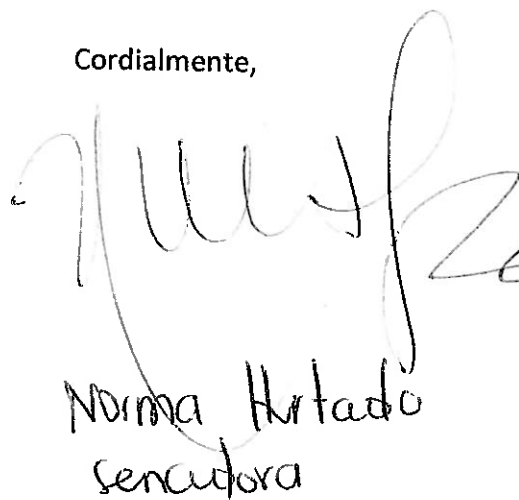 Cordialmente,
Norma Hurtado
senadora